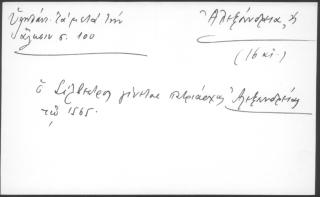 Ὑψηλάν. Τὰ μετὰ τὴν
ἅλωσιν σ. 100
Ἀλεξάνδρεια,
(16 αἰ.)
ὁ Σίλβεστρος γίνεται πατριάρχης Ἀλεξανδρείας
τῷ 1565.